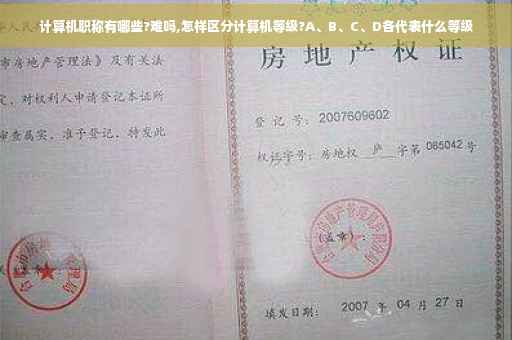 计算机职称有哪些?难吗,怎样区分计算机等级?A、B、C、D各代表什么等级
市房地产管理法》及有关法
定,对权利人申请登记本证所
审查属实,准予登记,特发此
房地产权证
登记号:2007609602
权证字号:房地权 庐 字第 085042 号
(盖章):
填发日期: 2007 年 04 月 27 日